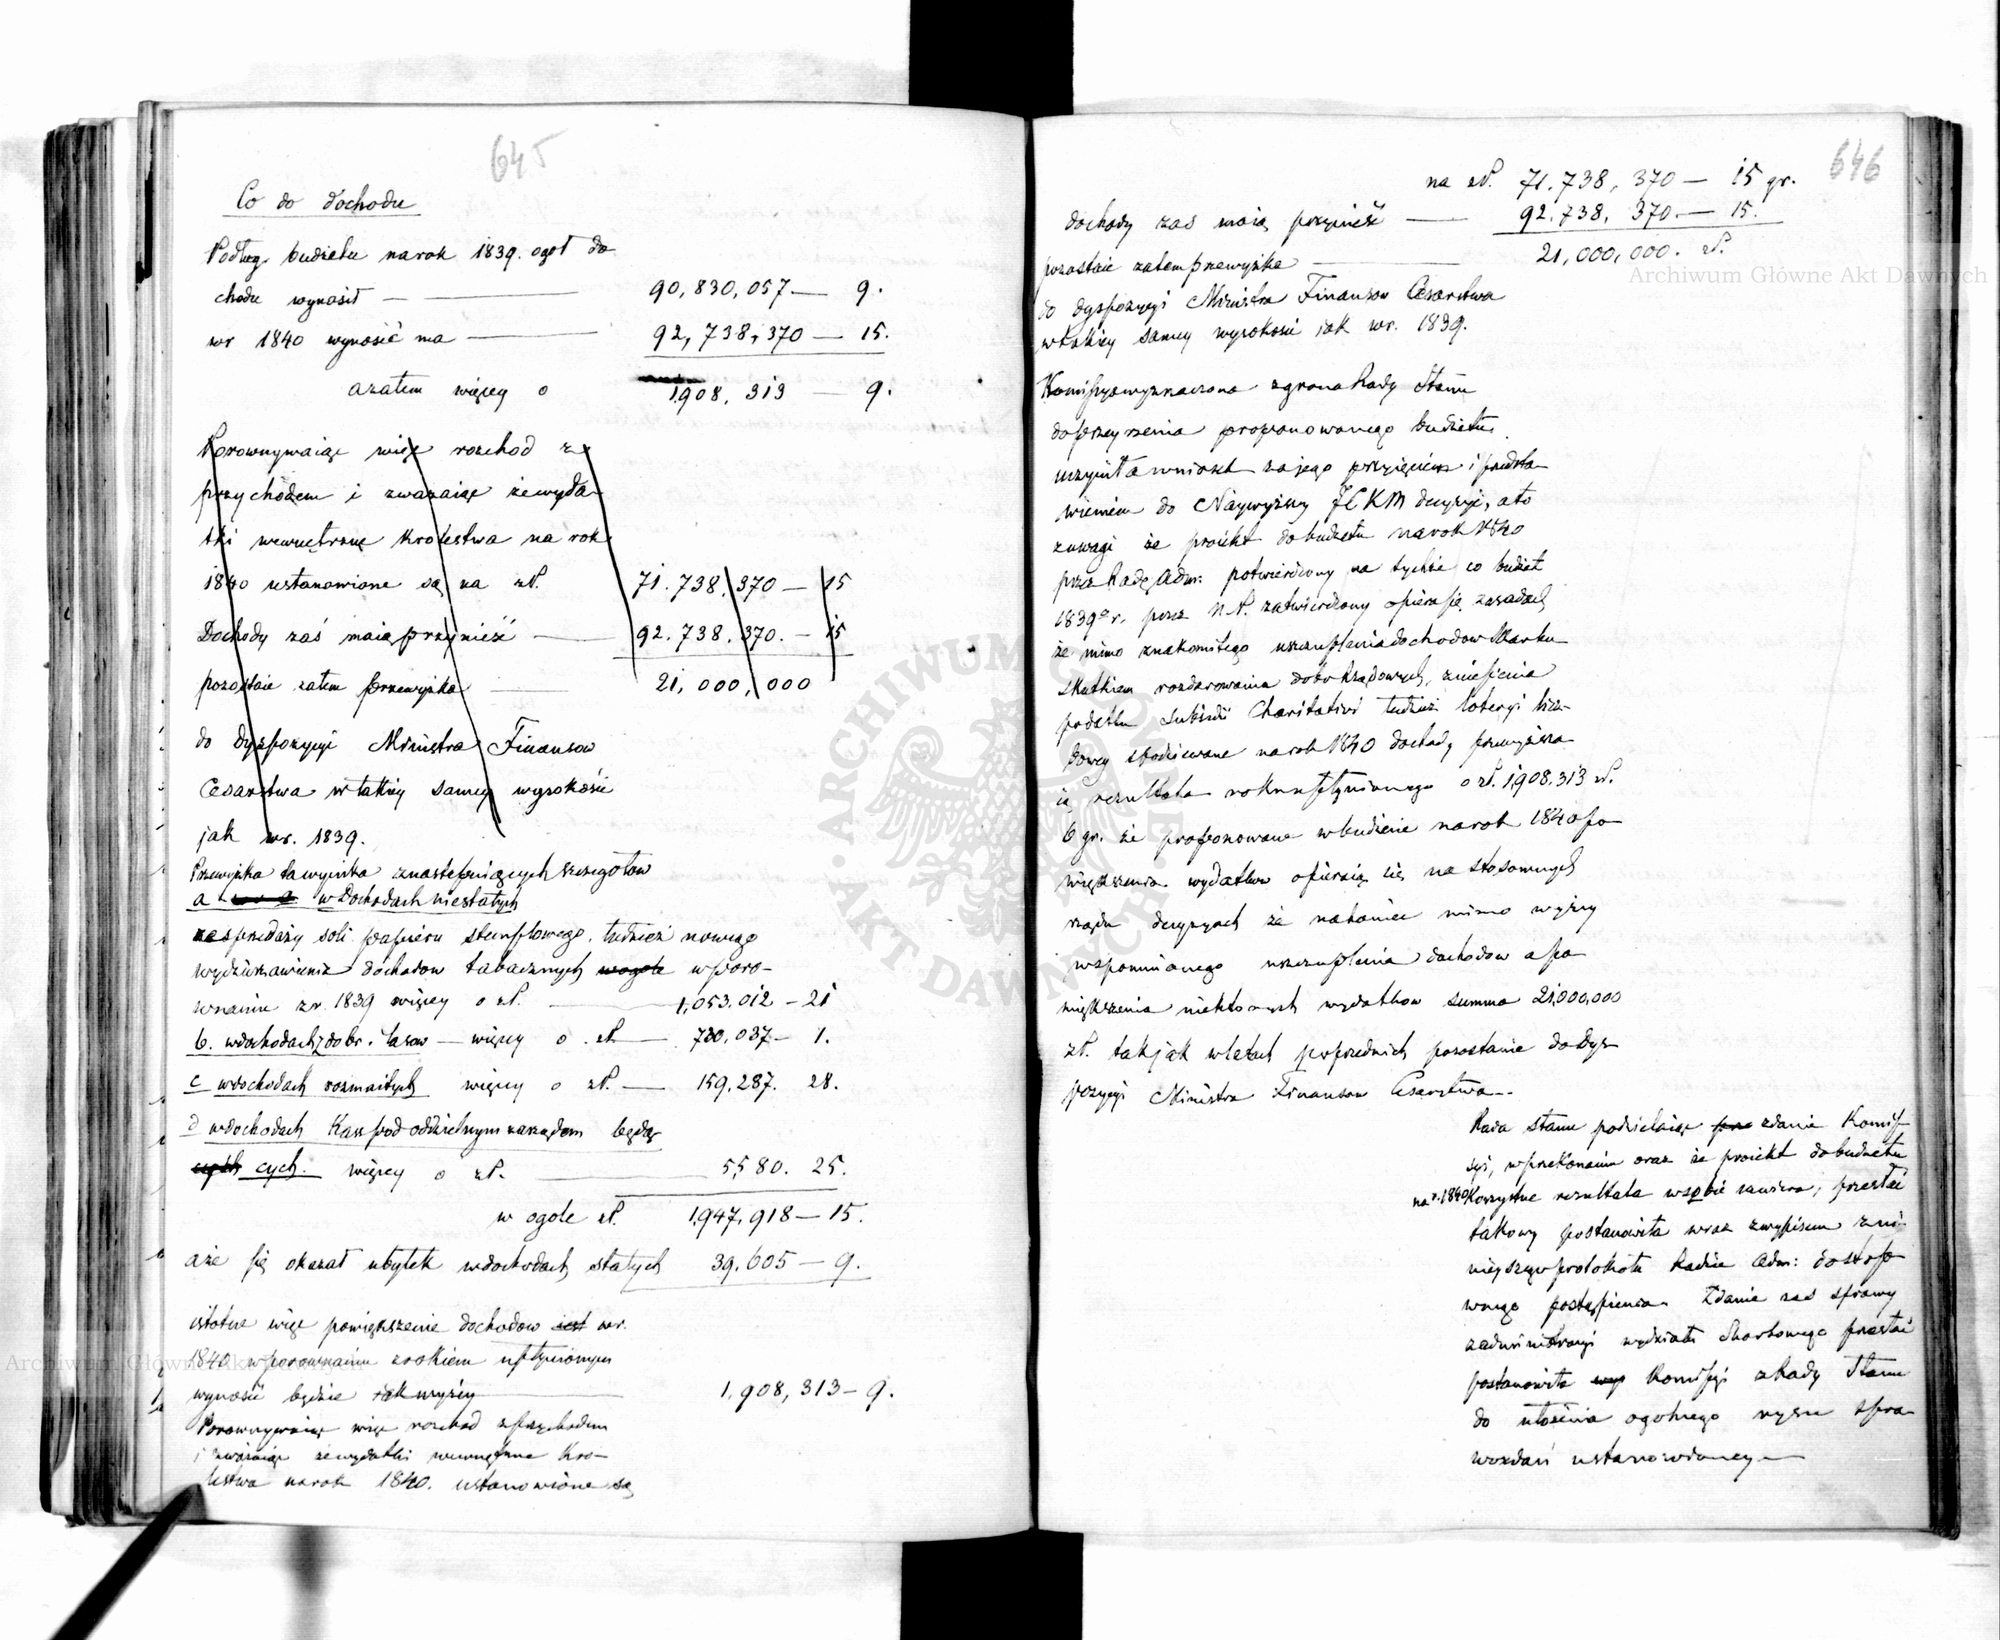 645
Co do dochodu
Podług budżetu na rok 1839. ogół do
chodu wynosił — 90,830,057 — 9.
w r 1840 wynosić ma — 92,738,370 — 15.
a zatem więcey o 1908,313 — 9.
Porownywaiąc więc rozchod z
przychodem i zważaiąc że wyda
tki wewnętrzne Krolestwa na rok
1840 ustanowione są na zł. 71.738.370 — 15
Dochody zaś maią przynieść — 92.738.370. — 15
pozostaie zatem przewyżka — 21,000,000
do dyspozycyi Ministra Finansow
Cesarstwa w takiey samey wysokości
jak w r. 1839.
Przewyżka ta wynika z następuiących szczegołow
a w Dochodach niestałych
ze sprzedaży soli papieru stemplowego, tudzież nowego
wydzierżawienia dochodow tabacznych wogole w poro-
wnaniu z r. 1839 więcey o zł. — 1,053,012 — 21
b. w dochodach z dobr i lasow — więcey o zł. — 730,037 — 1.
c w dochodach rozmaitych więcey o zł. — 159,287. 28.
d w dochodach Kass pod oddzielnym zarządem będą
cych. więcey o zł. — 5,580. 25.
w ogole zł. 1,947,918 — 15.
a że się okazał ubytek w dochodach stałych 39.605 — 9.
istotne więc powiększenie dochodow iest w r.
1840 w porownaniu z rokiem upłynionym
wynosić będzie jak wyżey — 1,908,313 — 9.
Porownywaiąc więc rozchod z przychodem
i zważaiąc że wydatki wewnętrzne Kro-
lestwa na rok 1840. ustanowione są
646
na zł. 71.738,370 — 15 gr.
dochody zaś maią przynieść — 92.738,370. — 15.
pozostaie zatem przewyżka — 21,000,000. zł.
do dyspozycyi Ministra Finansow Cesarstwa
w takiey samey wysokości jak w r. 1839.
Kommissya wyznaczona z grona Rady Stanu
do przeyrzenia proponowanego budżetu,
uczyniła wniosek za jego przyjęciem i przedsta
wieniem do Naywyższey JCKM decyzyi, a to
z uwagi że proiekt do budżetu na rok 1840
przez Radę Adm: potwierdzony na tychże co budżet
1839º r. przez N.P. zatwierdzony opiera się zasadach
że mimo znakomitego uszczuplenia dochodow Skarbu
skutkiem rozdarowania dobr Rządowych, zniesienia
podatku Subsidii Charitativi tudzież loteryi licz-
bowey spodziewane na rok 1840 dochody przewyższa
ią rezultata roku upłynionego o zł. 1,908,313 zł.
6 gr. że proponowane w budżecie na rok 1840 po
większenia wydatkow opieraią się na stosownych
rządu decyzyach że nakoniec mimo wyżey
wspomnionego uszczuplenia dochodow a po
większenia niektorych wydatkow summa 21,000,000
zł. tak jak w latach poprzednich pozostanie do dys
pozycyi Ministra Finansow Cesarstwa. —
Rada Stanu podzielaiąc zdanie Kommis
syi, w przekonaniu oraz że proiekt do budżetu
na r. 1840 Korzystne rezultata w sobie zawiera; przesłać
takowy postanowiła wraz z wypisem z ni-
nieyszego protokołu Radzie Adm: do stoso
wnego postąpienia. Zdanie zaś sprawy
z administracyi wydziału Skarbowego przesłać
postanowiła Kommissyi z Rady Stanu
do ułożenia ogolnego rysu spra
wozdań ustanowioney. —
Archiwum Główne Akt Dawnych